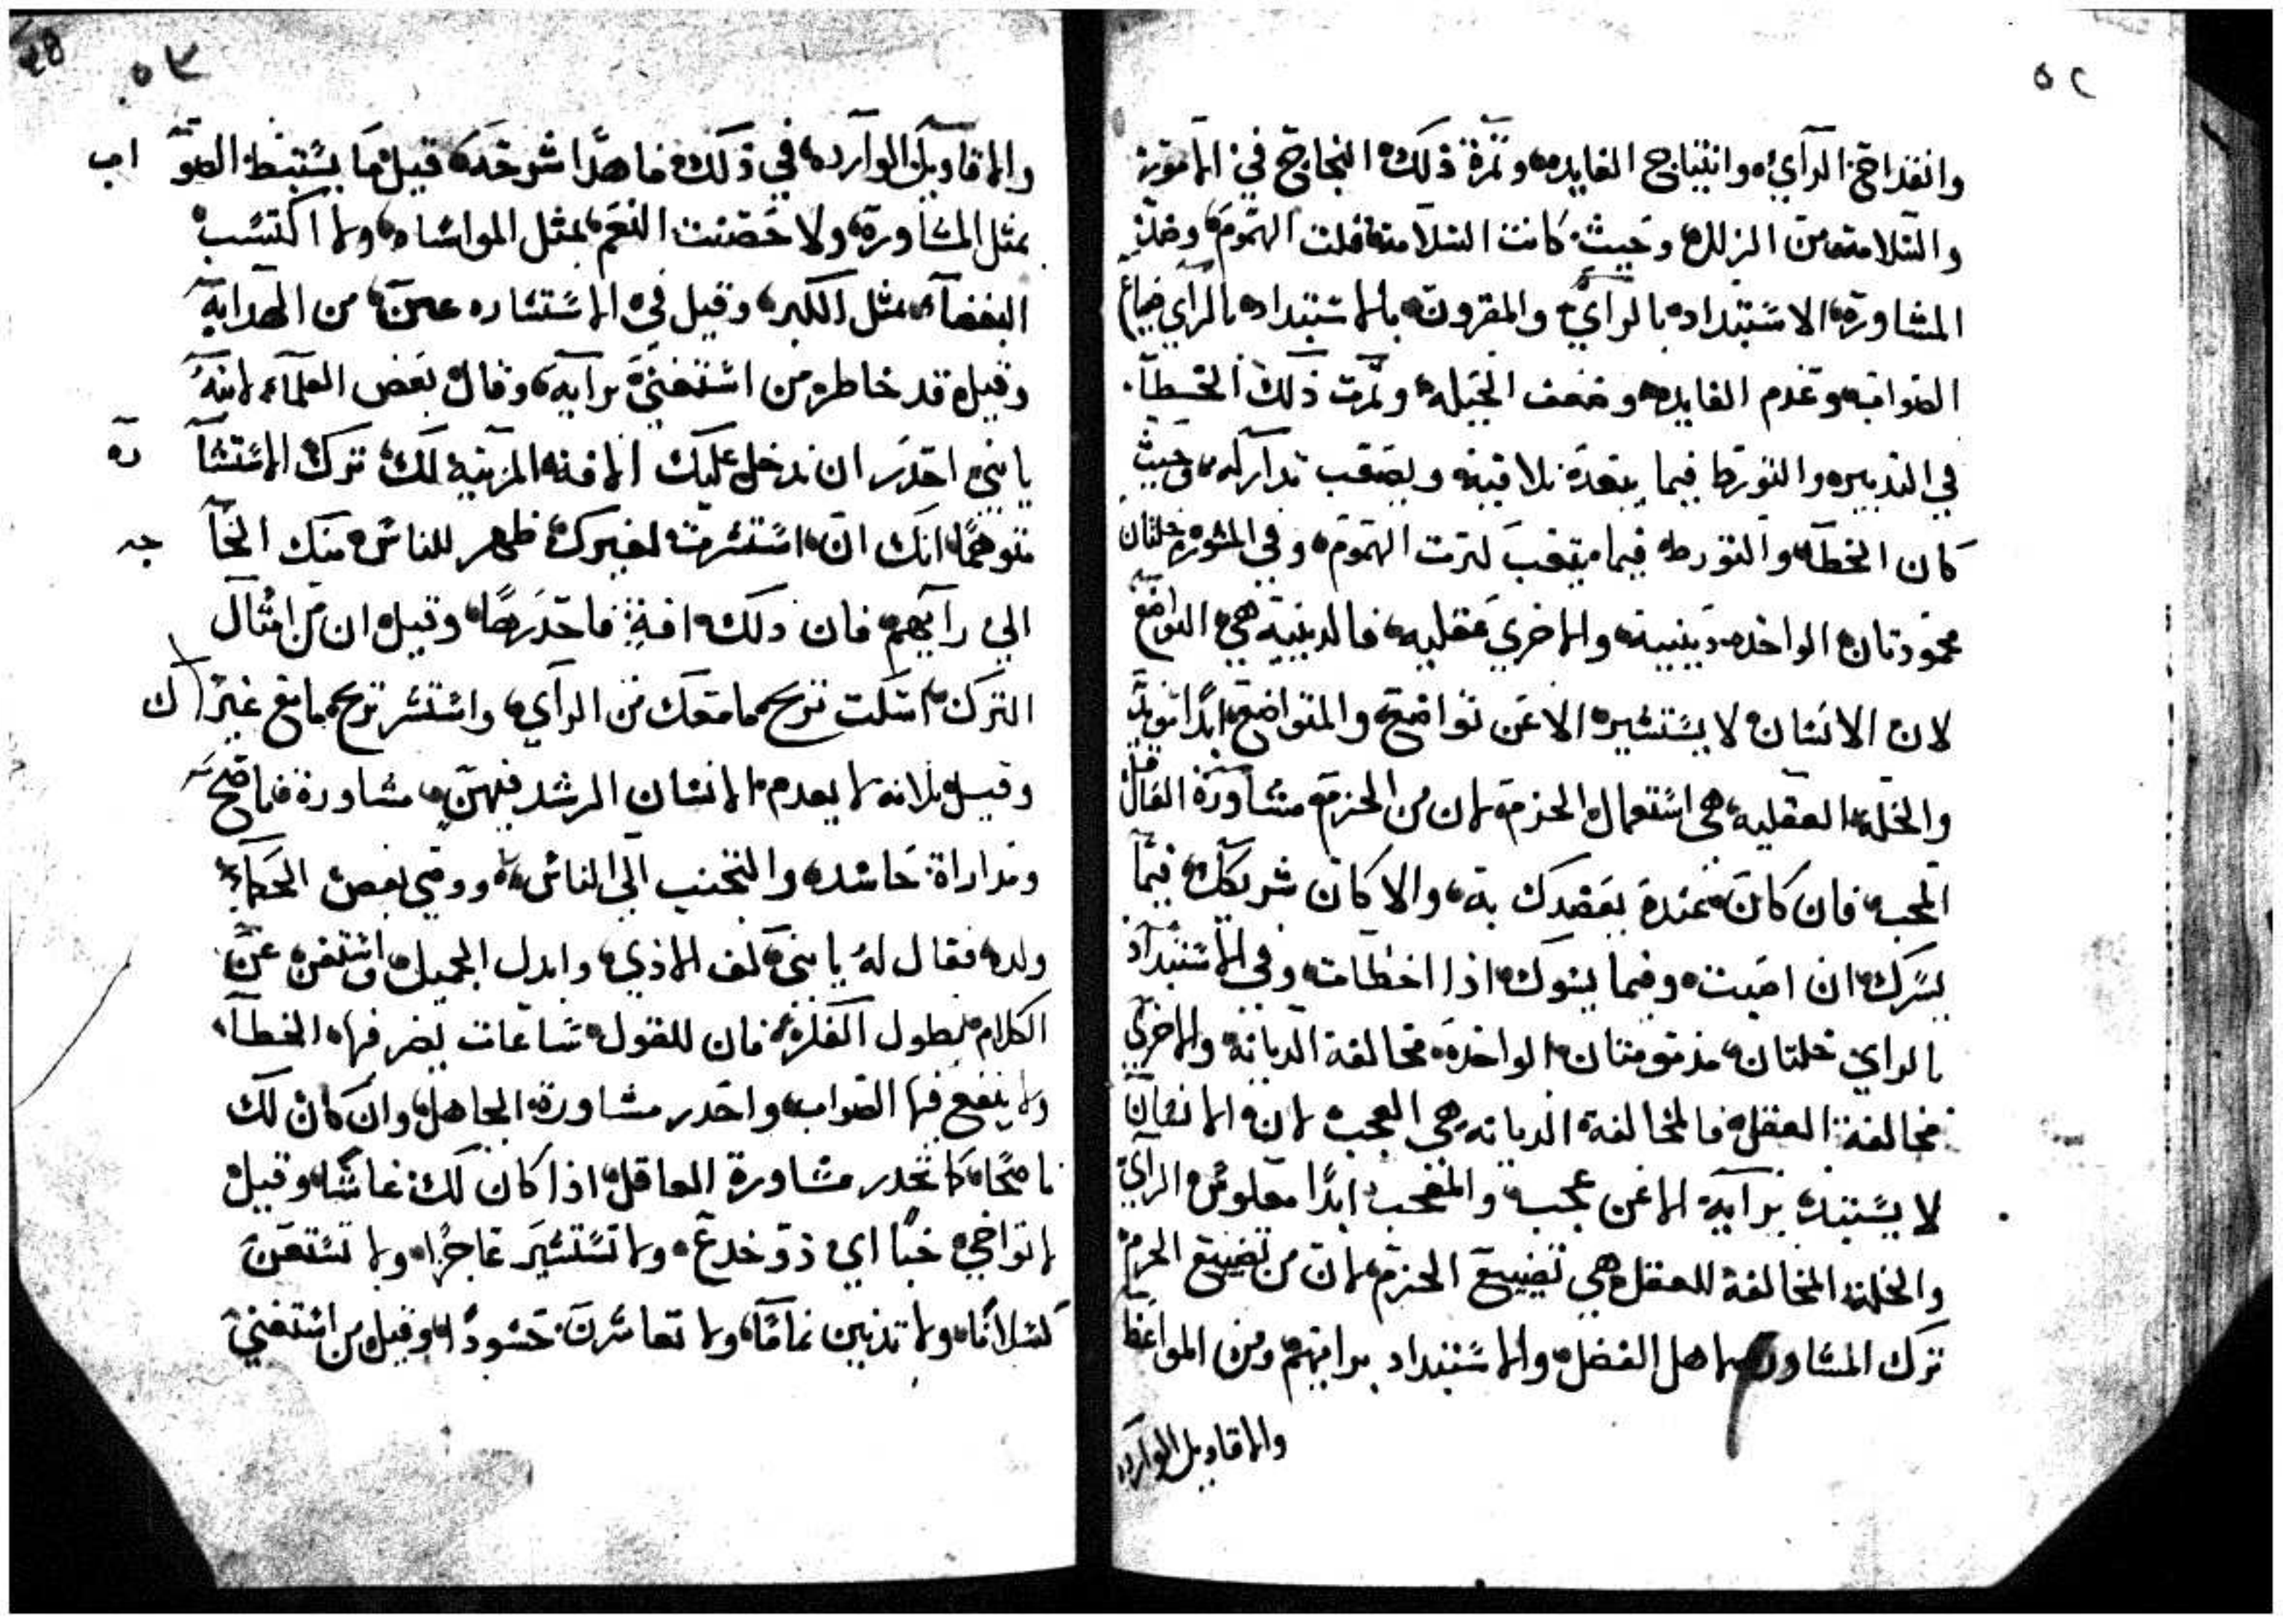 ٥٢
وانقداح الرآي، وانتتاج الفايده، وثمرة ذلك النجاح في الامور
والسلامه من الزلل، وحيث كانت السلامه قلت الهموم، وضد
المشاورة، الاستبداد بالرآي، والمقرون بالاستبداد بالرآي ضياع
الصواب، وعدم الفايده، وضعف الحيله، وثمرت ذلك الخطآ.
في التدبير، والتورط فيما يبعد تلافيه ويصعب تداركه، وحيث
كان الخطآ والتورط فيما يتعب لزمت الهموم، وفي المشوره خلتان
محمودتان، الواحده دينية، والاخري عقليه، فالدينيه هي التواضع
لان الانسان لا يستشير الا عن تواضع، والمتواضع ابدًا مويد
والخله العقليه، هي استعمال الحزم، لان من الحزم مشاورة العاقل
المحب، فان كان عنده يعضدك به، والا كان شريكك فيما
يسرك ان اصبت، وفيما يسوك اذا اخطات، وفي الاستبداد
بالراي خلتان، مذمومتان، الواحده مخالفة الديانه، والاخري
مخالفة العقل، فالمخالفة الديانه، هي العجب، لان الانسان
لا يستبد، برآيه الا عن عجب، والمعجب ابدًا معلوس الرآي
والخلة المخالفة للعقل، هي تضييع الحزم، لان من تضييع الحزم
ترك المشاوره لاهل الفضل، والاستبداد برايهم، ومن المواعظ
والاقاويل الوارده
٥٣
والاقاويل الوارده، في ذلك، ما هدا شرحه، قيل ما يستنبط الصواب
بمثل المشاورة، ولا حصنت النعم، بمثل المواساه، ولا اكتسب
البغضآ، بمثل الكبر، وقيل في الاستشاره عين، من الهدايه
وقيل، قد خاطر، من استغني برآيه، وقال بعض العلمآء لابنه
يا بني احدر ان تدخل عليك الافه المزينه لك، ترك الاستشآره
متوهمًا انك ان، استشرت لغيرك، ظهر للناس، منك الحآجه
الي رآيهم، فان ذلك افة، فاحدرها، وقيل، ان من امثال
الترك، امسكت تربح، ما معك من الرآي، واستشر تربح، ما مع غيرك
وقيل، ثلاثه لا يعدم، الانسان الرشد فيهن، مشاورة ناصح
ومداراة حاسد، والتحبب الي الناس، ووصي بعض الحكمآء
ولده فقال له، يا بني كف الاذي، وابدل الجميل، واستغن عن
الكلام بطول الفكر، فان للقول، ساعات يضر فيها، الخطآ،
ولا ينفع فيها الصواب، واحدر مشاورة الجاهل، وان كان لك
ناصحًا، كما تحدر مشاورة العاقل، اذا كان لك غاشًا، وقيل
لا تواخي خبًا، اي ذو خدع، ولا تستشير عاجزًا، ولا تستعن
كسلانًا، ولا تدنين نمامًا، ولا تعاشرن حسودًا، وقيل من استغني